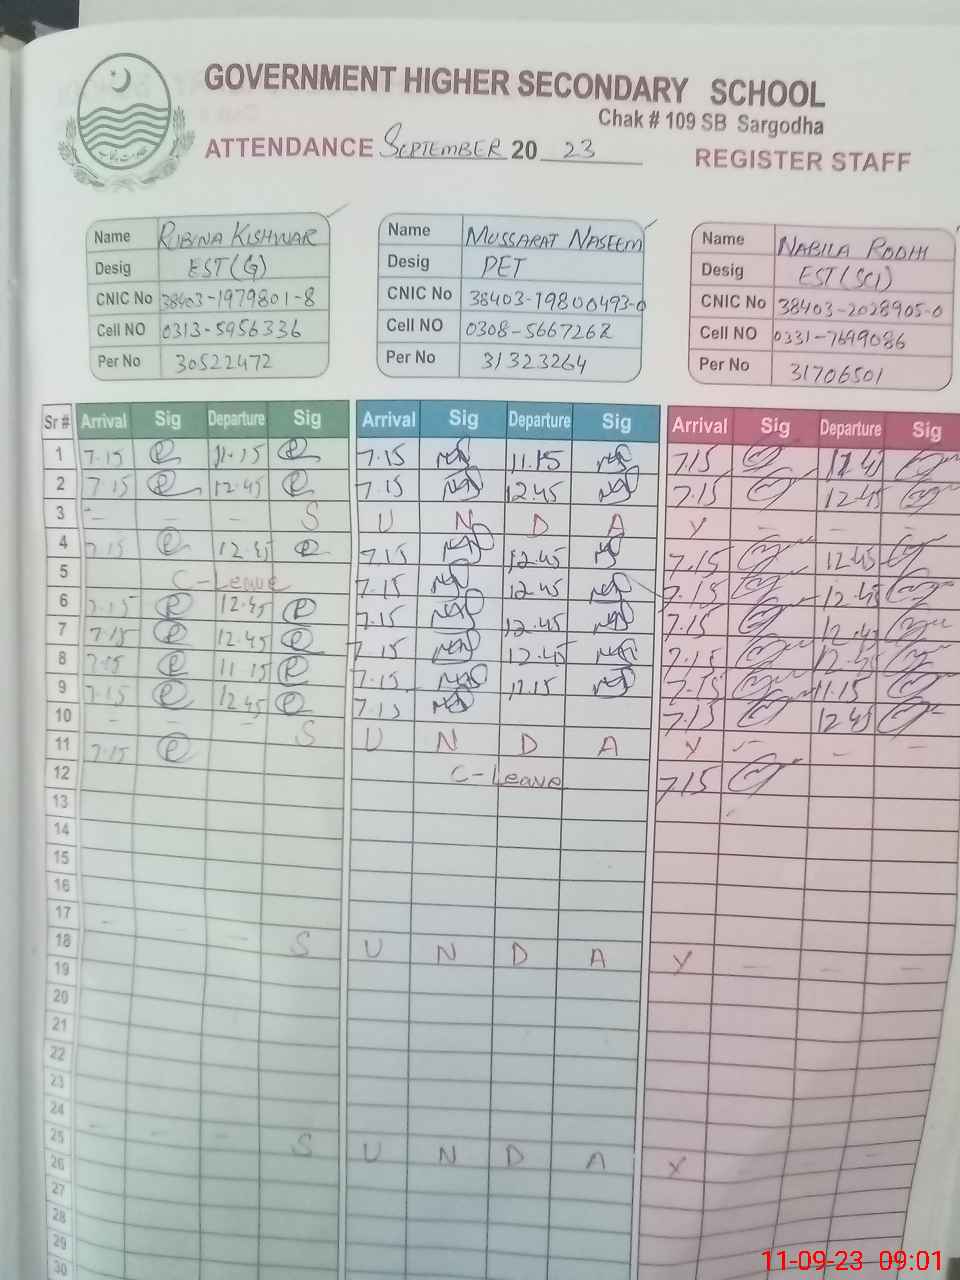 GOVERNMENT HIGHER SECONDARY SCHOOL
Chak # 109 SB Sargodha
ATTENDANCE SEPTEMBER 20 23 REGISTER STAFF
Name RUBINA KISHWAR
Desig EST(G)
CNIC No 38403-1979801-8
Cell NO 0313-5956336
Per No 30522472
Name MUSSARAT NASEEM
Desig PET
CNIC No 38403-19800493-0
Cell NO 0308-5667262
Per No 31323264
Name NABILA
Desig EST(SCI)
CNIC No 38403-2028905-0
Cell NO 0331-7699086
Per No 31706501
Sr # Arrival Sig Departure Sig Arrival Sig Departure Sig Arrival Sig Departure Sig
1 7.15 11.15 7.15 11.15 7.15
2 7.15 12.45 7.15 12.45 7.15 12.45
3 - - - S U N D A Y - - -
4 7.15 12.45 7.15 12.45 7.15 12.45
5 C-Leave 7.15 12.45 7.15 12.45
6 7.15 12.45 7.15 12.45 7.15 12.45
7 7.15 12.45 7.15 12.45 7.15 12.45
8 7.15 11.15 7.15 11.15 7.15 11.15
9 7.15 12.45 7.15 7.15 12.45
10 - - - S U N D A Y - - -
11 7.15 C-Leave 7.15
12
13
14
15
16
17 - - - S U N D A Y - - -
18
19
20
21
22
23
24 - - - S U N D A Y - - -
25
26
27
28
29
30
11-09-23 09:01